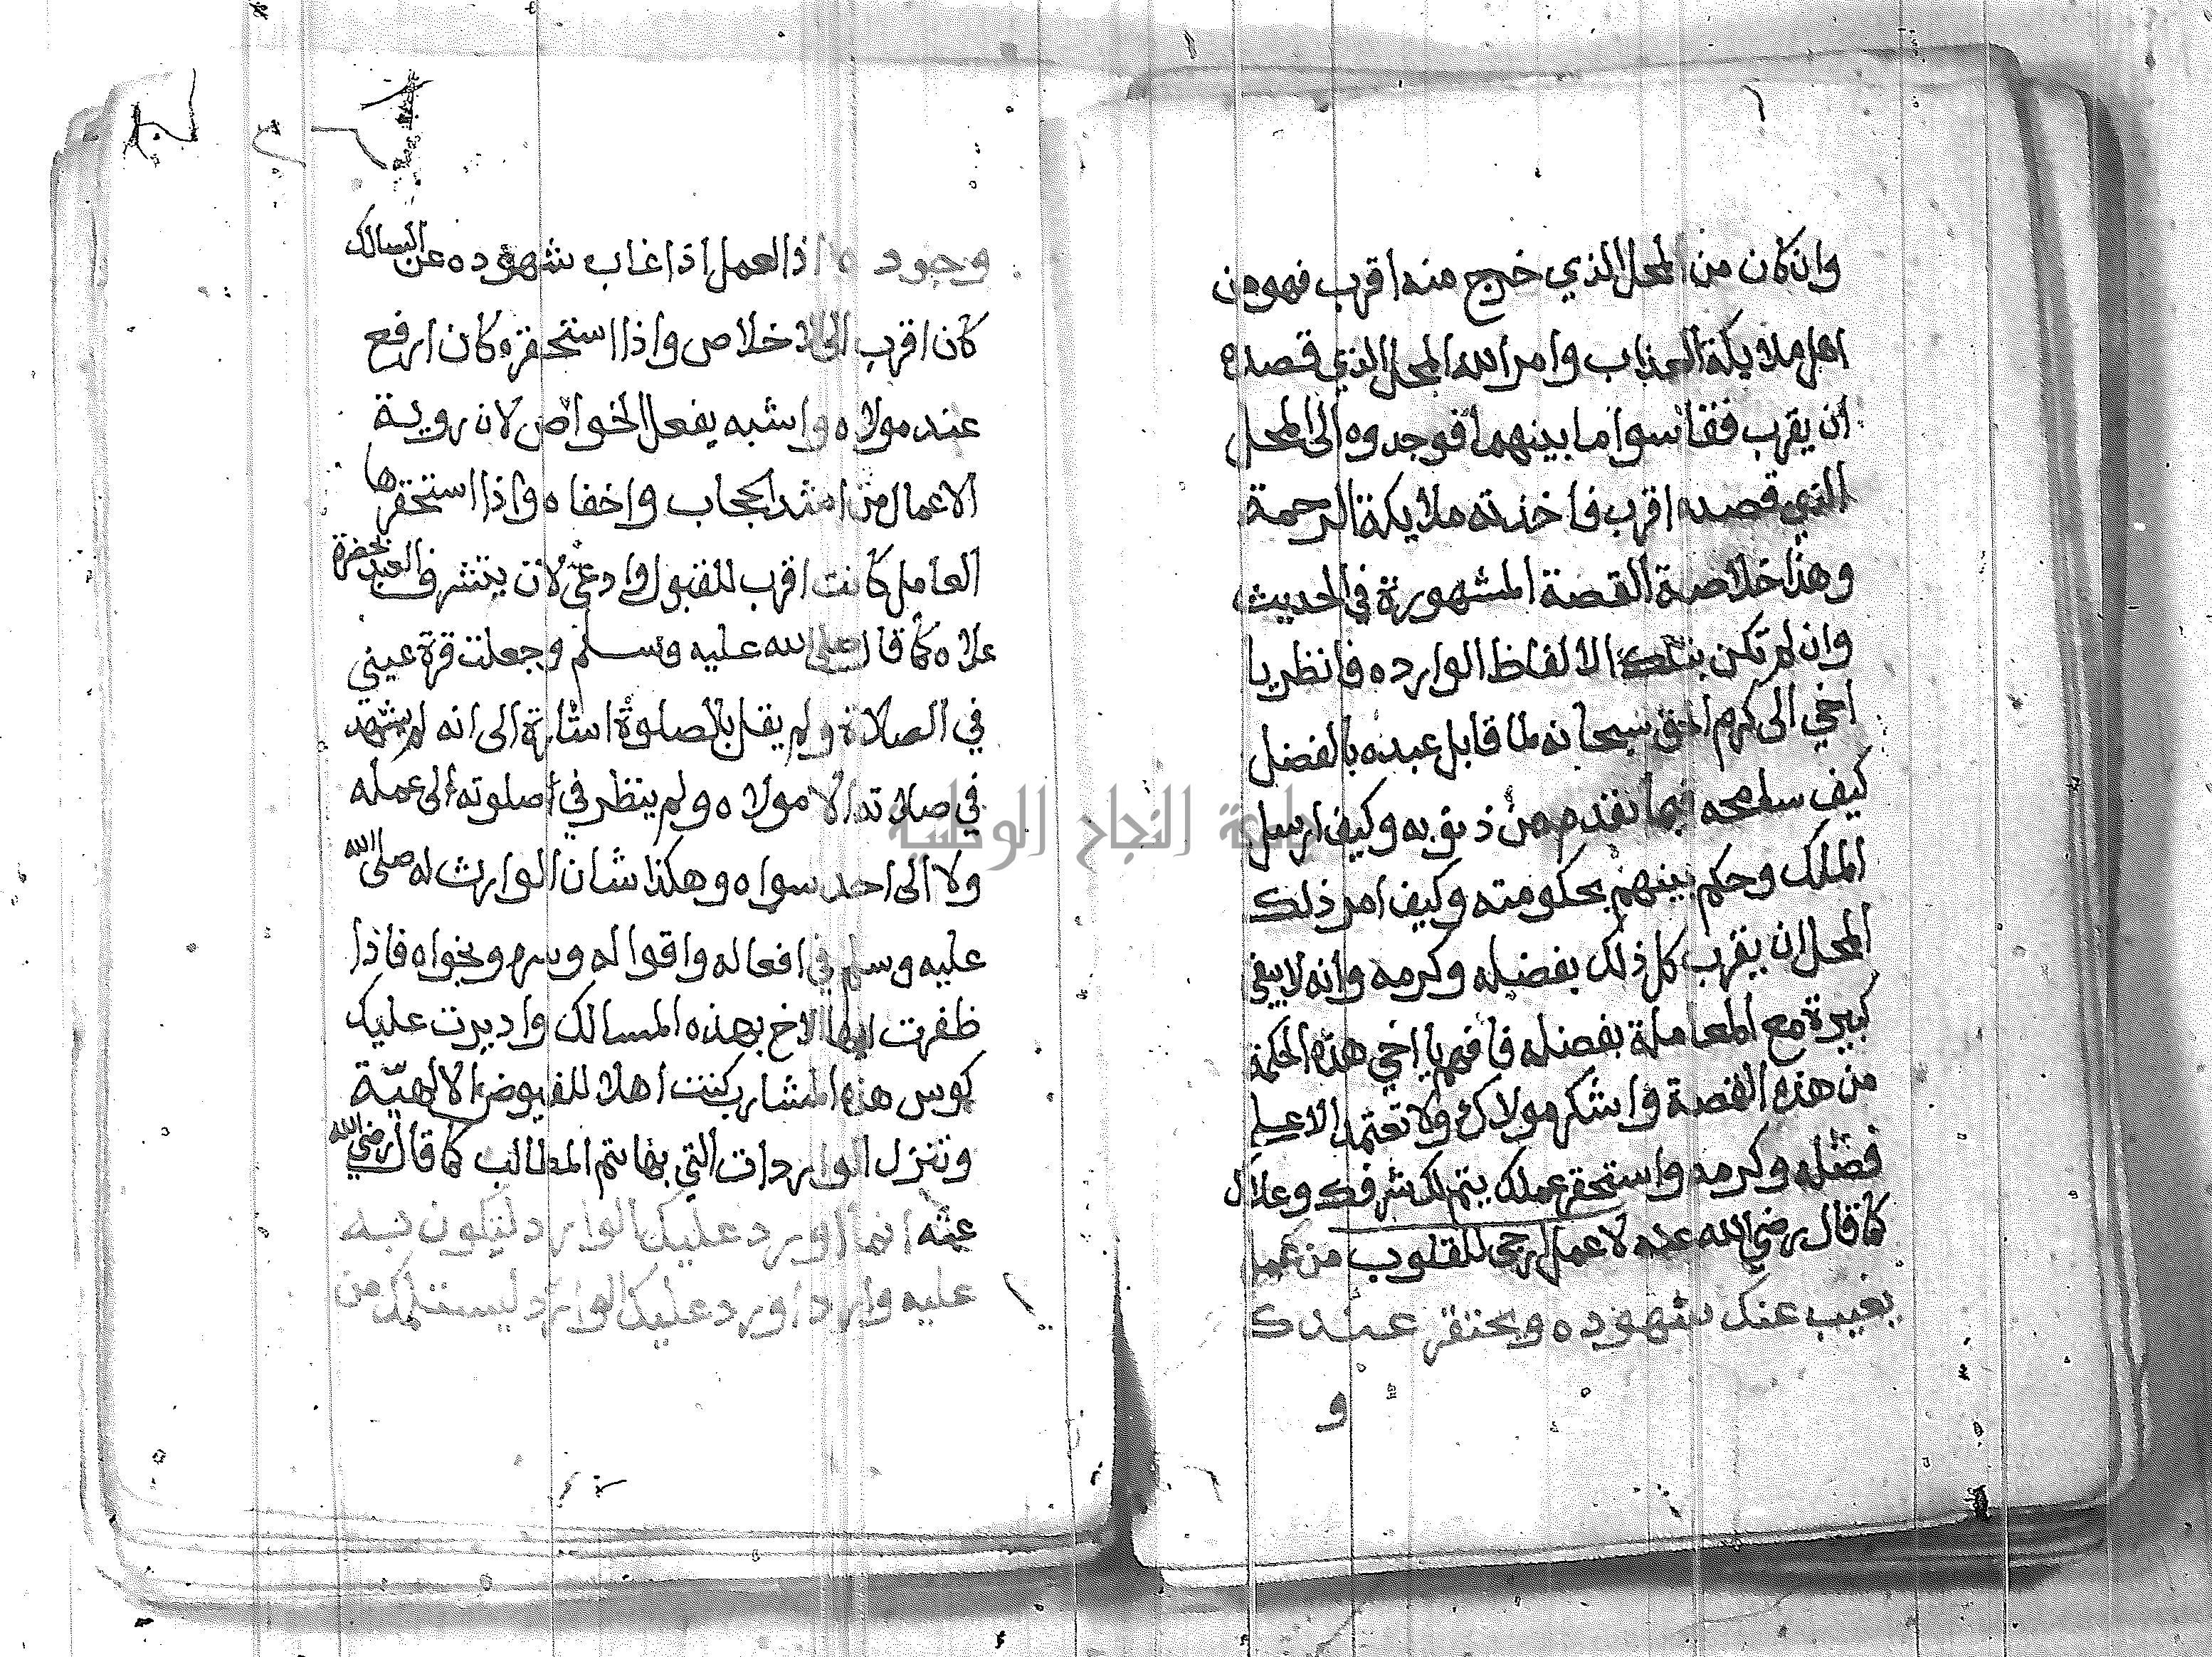 وان كان من المحل الذي خرج منه اقرب فهو من
اهل ملايكة العذاب وامر الله المحل الذي قصده
ان يقرب فقاسوا ما بينهما فوجدوه الى المحل
الذي قصده اقرب فاخذته ملايكة الرحمة
وهذا خلاصة القصة المشهورة في الحديث
وان لم تكن بتلك الالفاظ الوارده فانظر يا
اخي الى كرم الحق سبحانه لما قابل عبده بالفضل
كيف سامحه فيما تقدم من ذنوبه وكيف ارسل
الملك وحكم بينهم بحكومته وكيف امر ذلك
المحل ان يقرب كل ذلك بفضله وكرمه وانه لا يبقى
كبيرة مع المعاملة بفضله فافهم يا اخي هذه الحكمة
من هذه القصة واشكر مولاك ولا تعتمد الا على
فضله وكرمه واستحقر عملك يتم لك شرفك وعلاك
كما قال رضي الله عنه لا عمل ارجى للقلوب من عمل
يغيب عنك شهوده ويحتقر عندك
و
وجوده اذ العمل اذا غاب شهوده عن السالك
كان اقرب الى الاخلاص واذا استحقره كان ارفع
عند مولاه واشبه بفعل الخواص لان روية
الاعمال من اشد الحجاب واخفاه واذا استحقرها
العامل كانت اقرب للقبول وادعى لان يتشرف العبد بحضرة
علاه كما قال صلى الله عليه وسلم وجعلت قرة عيني
في الصلاة ولم يقل بالصلوة اشارة الى انه لم يشهد
في صلاته الا مولاه ولم ينظر في صلوته الى عمله
ولا الى احد سواه وهكذا شان الوارث له صلى الله
عليه وسلم في افعاله واقواله وسره ونجواه فاذا
ظفرت ايها الاخ بهذه المسالك واديرت عليك
كوس هذه المشارب كنت اهلا للفيوض الالهيّة
وتنزل الواردات التي بها تتم المطالب كما قال رضي الله
عنه انما اورد عليك الوارد لتكون به
عليه واردا اورد عليك الوارد ليستنقذك من
جامعة النجاح الوطنية